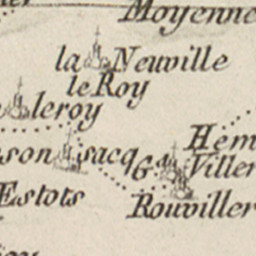 Moyenne
la Neuville
le Roy
leroy
Hem
son sacq Gd. Viller
Estots
Rouviller